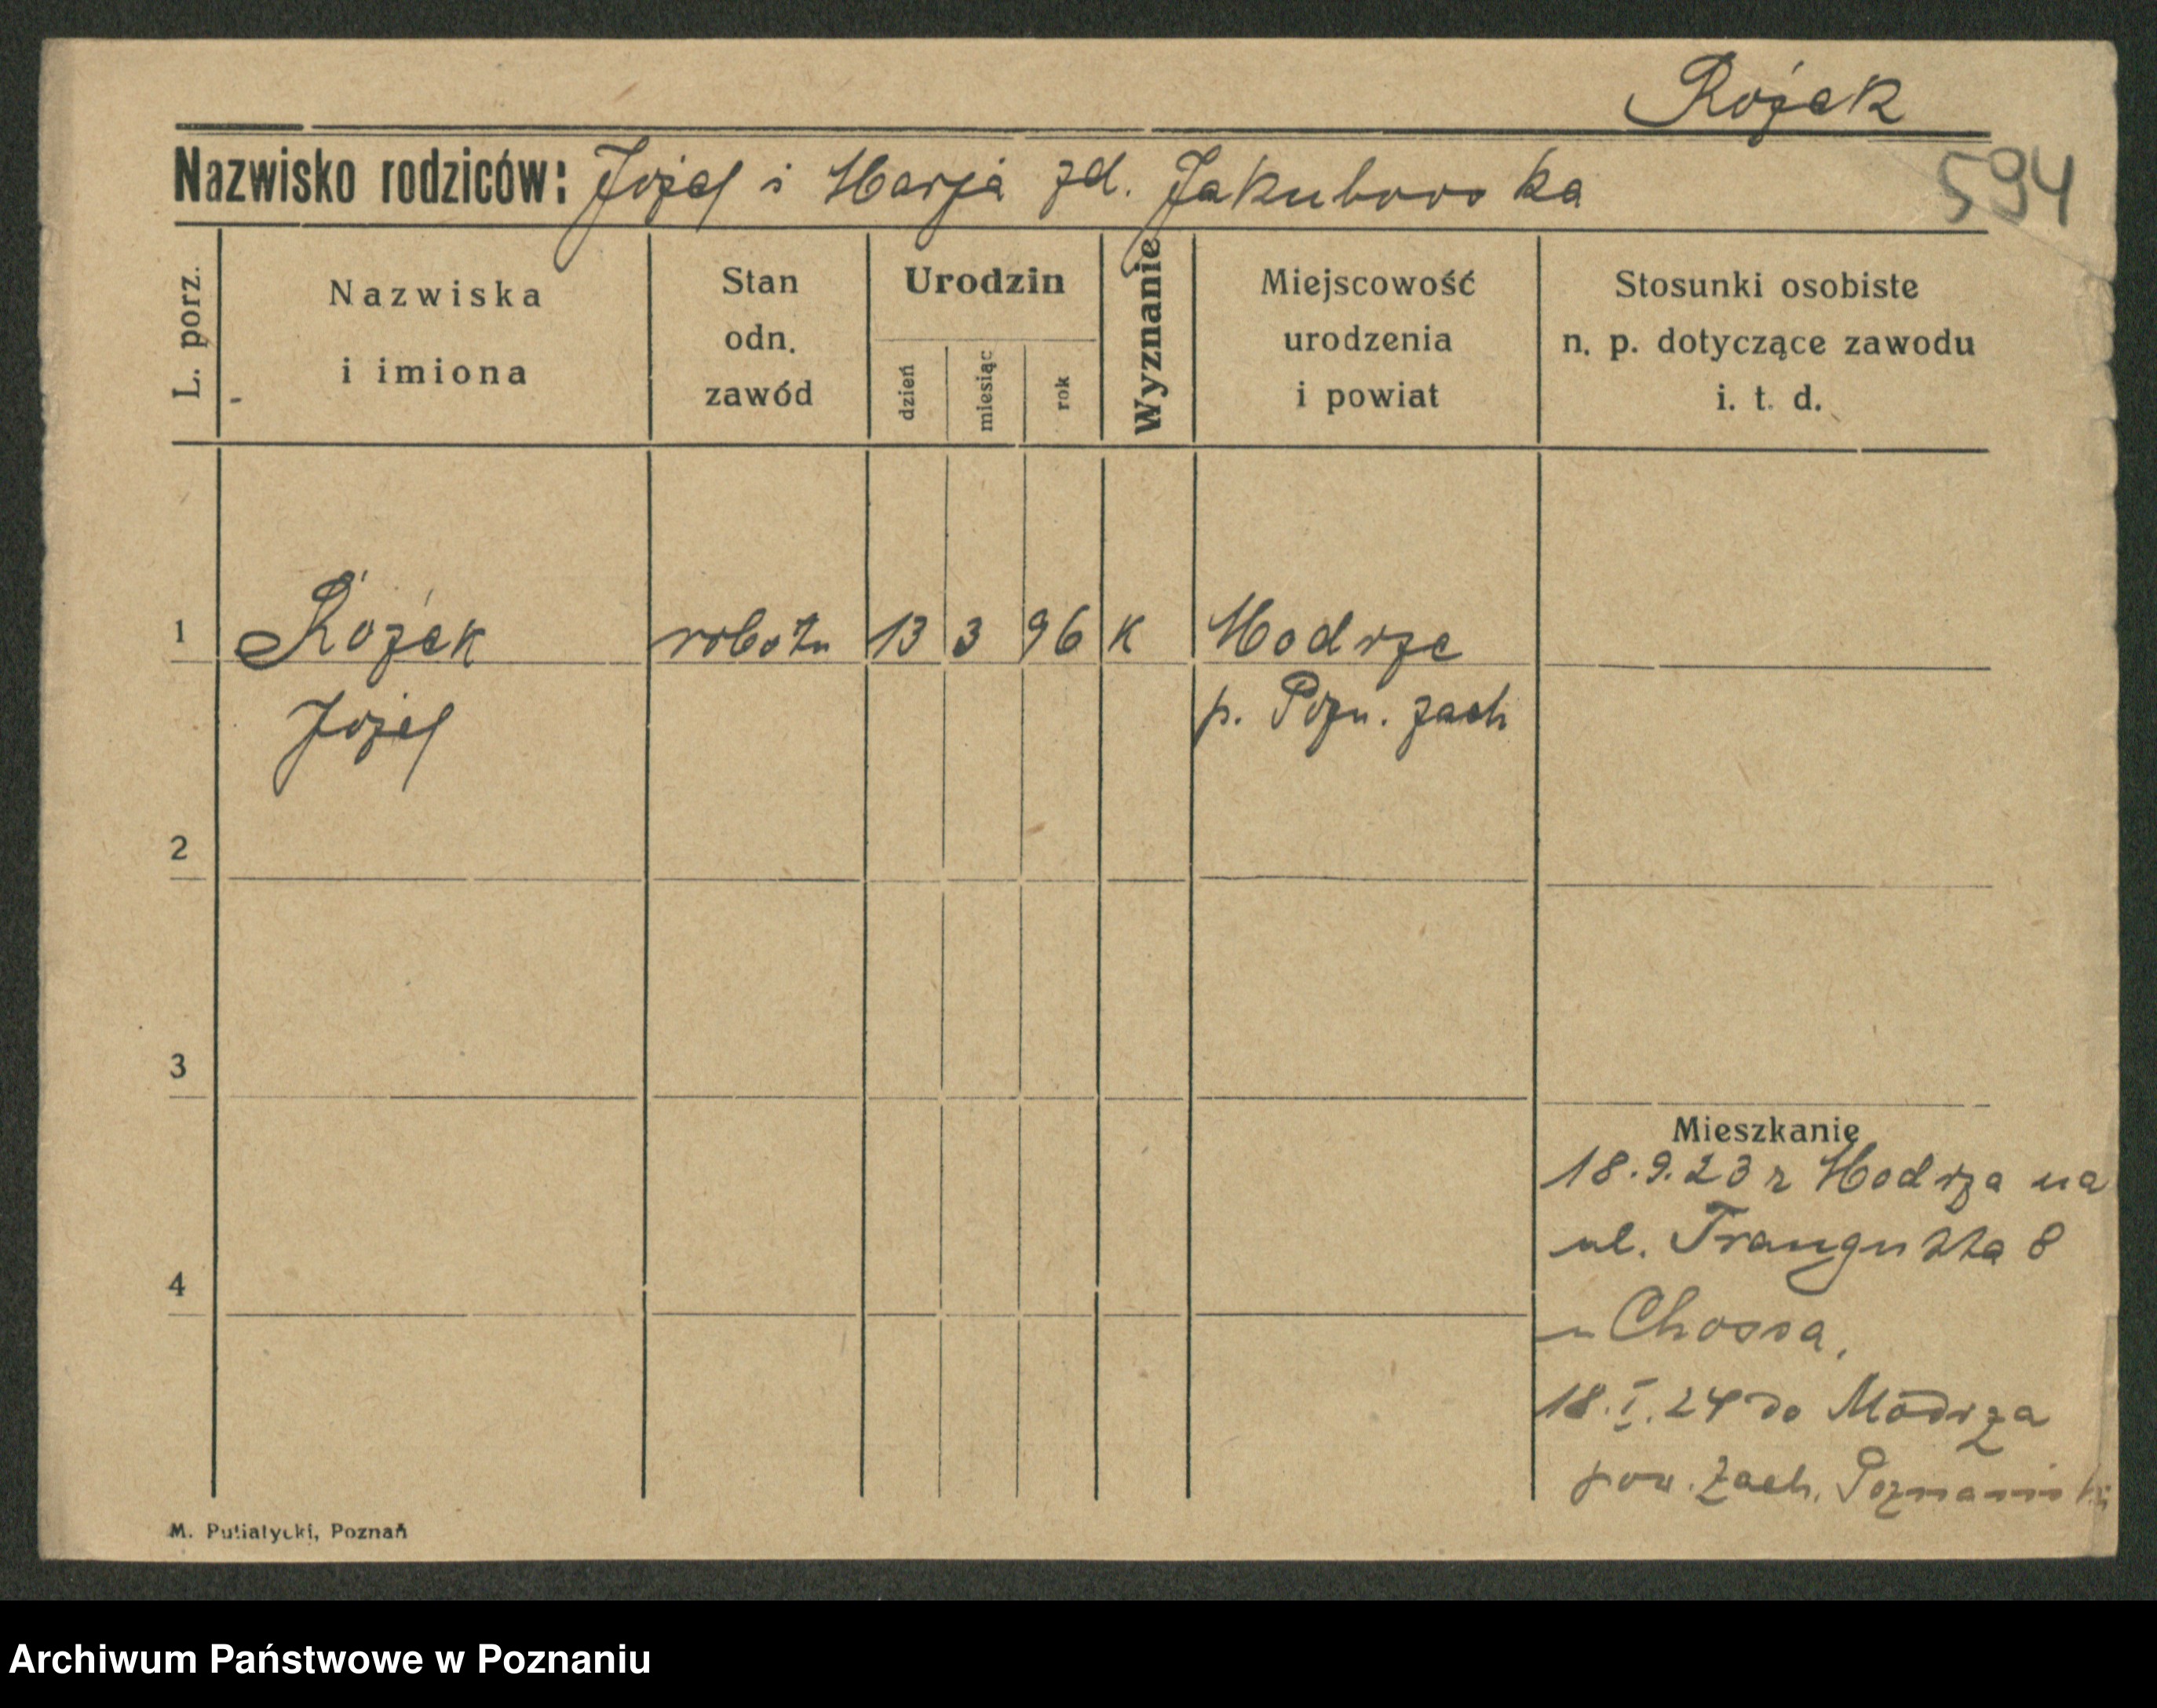 Rożek
594
Nazwisko rodziców: Jozef i Marja zd. Jakubowska
L. porz.
Nazwiska
i imiona
Stan
odn.
zawód
Urodzin
dzień
miesiąc
rok
Wyznanie
Miejscowość
urodzenia
i powiat
Stosunki osobiste
n. p. dotyczące zawodu
i. t. d.
1 Rożek robotn 13 3 96 K Modrze
Jozef p. Pozn. zach
2
3
Mieszkanie
18.9.23 z Modrza na
ul. Traugutta 8
u
4
18.I.24 do Modrza
pow. Zach. Poznański
M. Putiatycki, Poznań
Archiwum Państwowe w Poznaniu